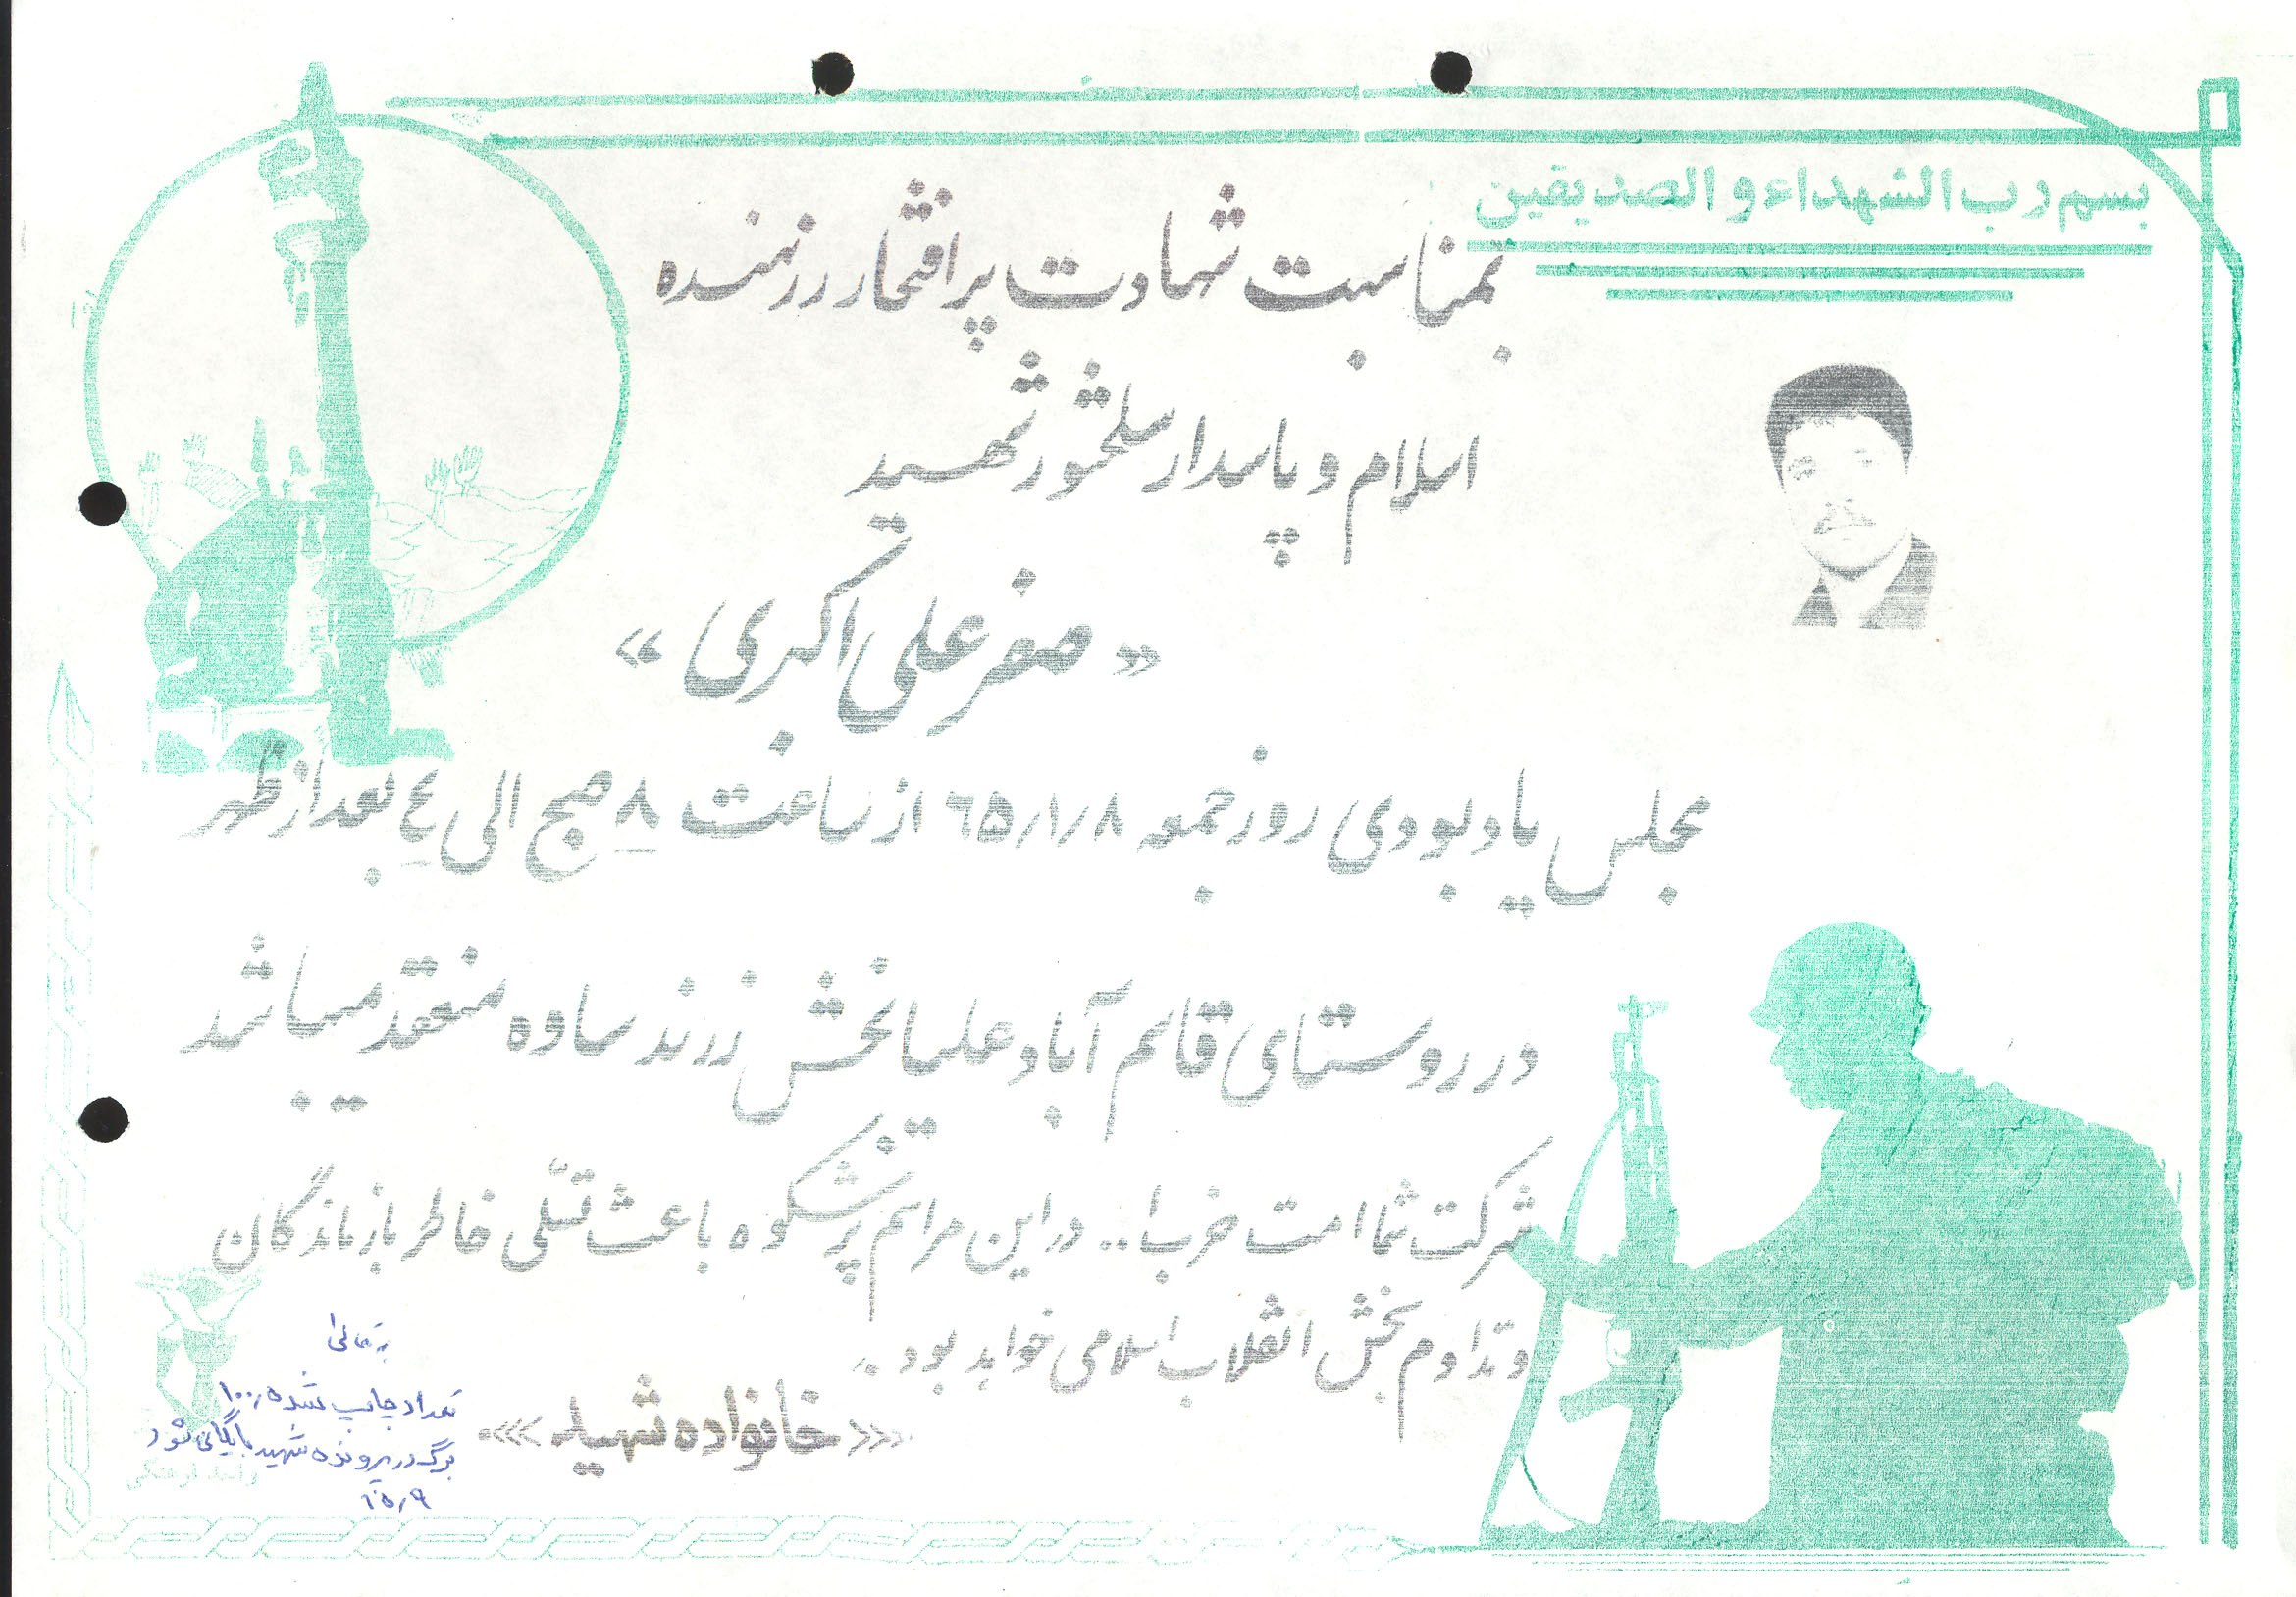 بسم رب الشهداء و الصدیقین
بمناسبت شهادت پر افتخار رزمنده
اسلام و پاسدار سلحشور شهید
«صفر علی اکبری»
مجلس یادبودی روز جمعه ۶۵/۱/۸ از ساعت ۸ صبح الی ٤ بعد از ظهر
در روستای قاسم آباد علیا بخش زرند ساوه منعقد میباشد
شرکت شما امت حزب ا.. در این مراسم پرشکوه باعث تسّلی خاطر بازماندگان
و تداوم بخش انقلاب اسلامی خواهد بود.
«««خانواده شهید»»»
تعداد چاپ شده ۱۰۰
برگ در پرونده شهید بایگانی شود
واحد فرهنگی